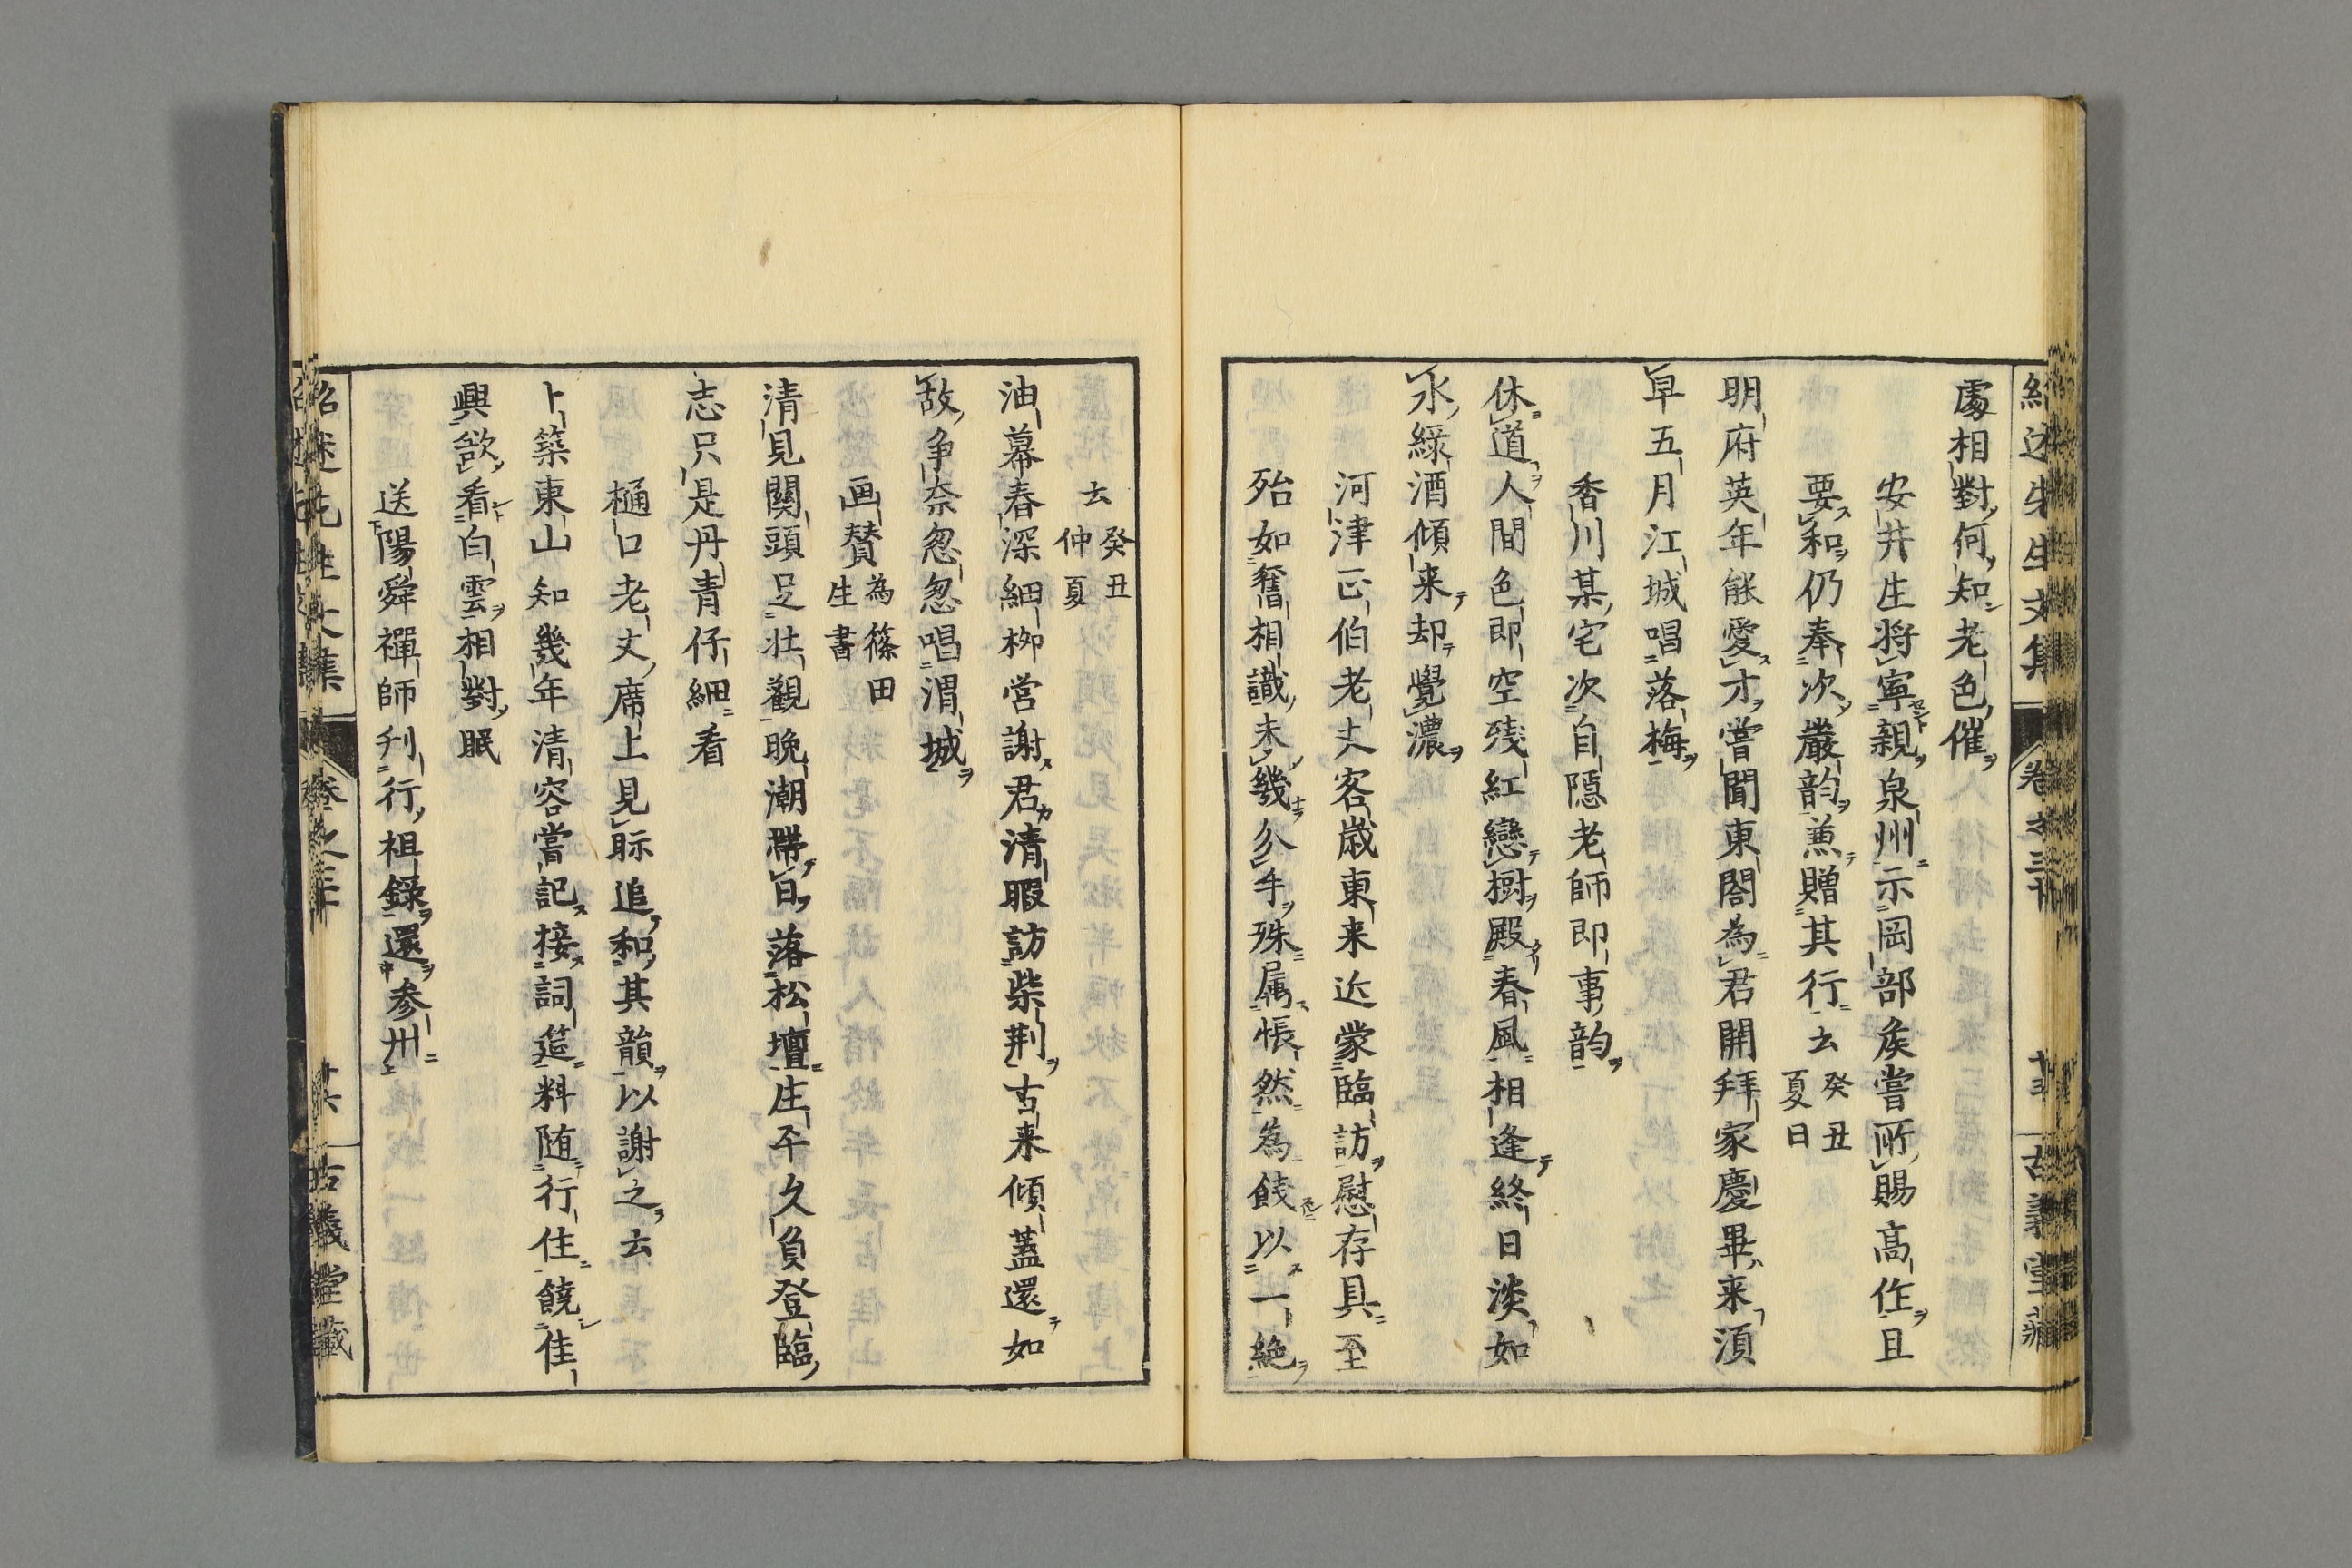 處相對何知老色催
安井生将寧親泉州示岡部矦嘗所賜高作且
要和仍奉次嚴韵兼贈其行云癸丑夏日
明府英年能愛才嘗聞東閤為君開拜家慶畢来須
早五月江城唱落梅
香川某宅次自隠老師即事韵
休道人間色即空残紅戀樹殿春風相逢終日淡如
水緑酒傾来却覺濃
河津正伯老丈客歳東来近蒙臨訪慰存具至
殆如舊相識未幾分手殊属悵然為餞以一絶
云癸丑仲夏
油幕春深細栁営謝君清暇訪柴荆古来傾蓋還如
故争奈怱怱唱渭城
画賛為篠田生書
清見關頭足壮觀晩潮帶日落松壇庄平久負登臨
志只是丹青仔細看
樋口老丈席上見眎追和其韻以謝之云
卜築東山知幾年清容嘗記接詞筵料随行住饒佳
興欲看白雲相對眠
送陽舜禪師刋行祖錄還参州
紹述先生文集
卷之三十
古義堂藏